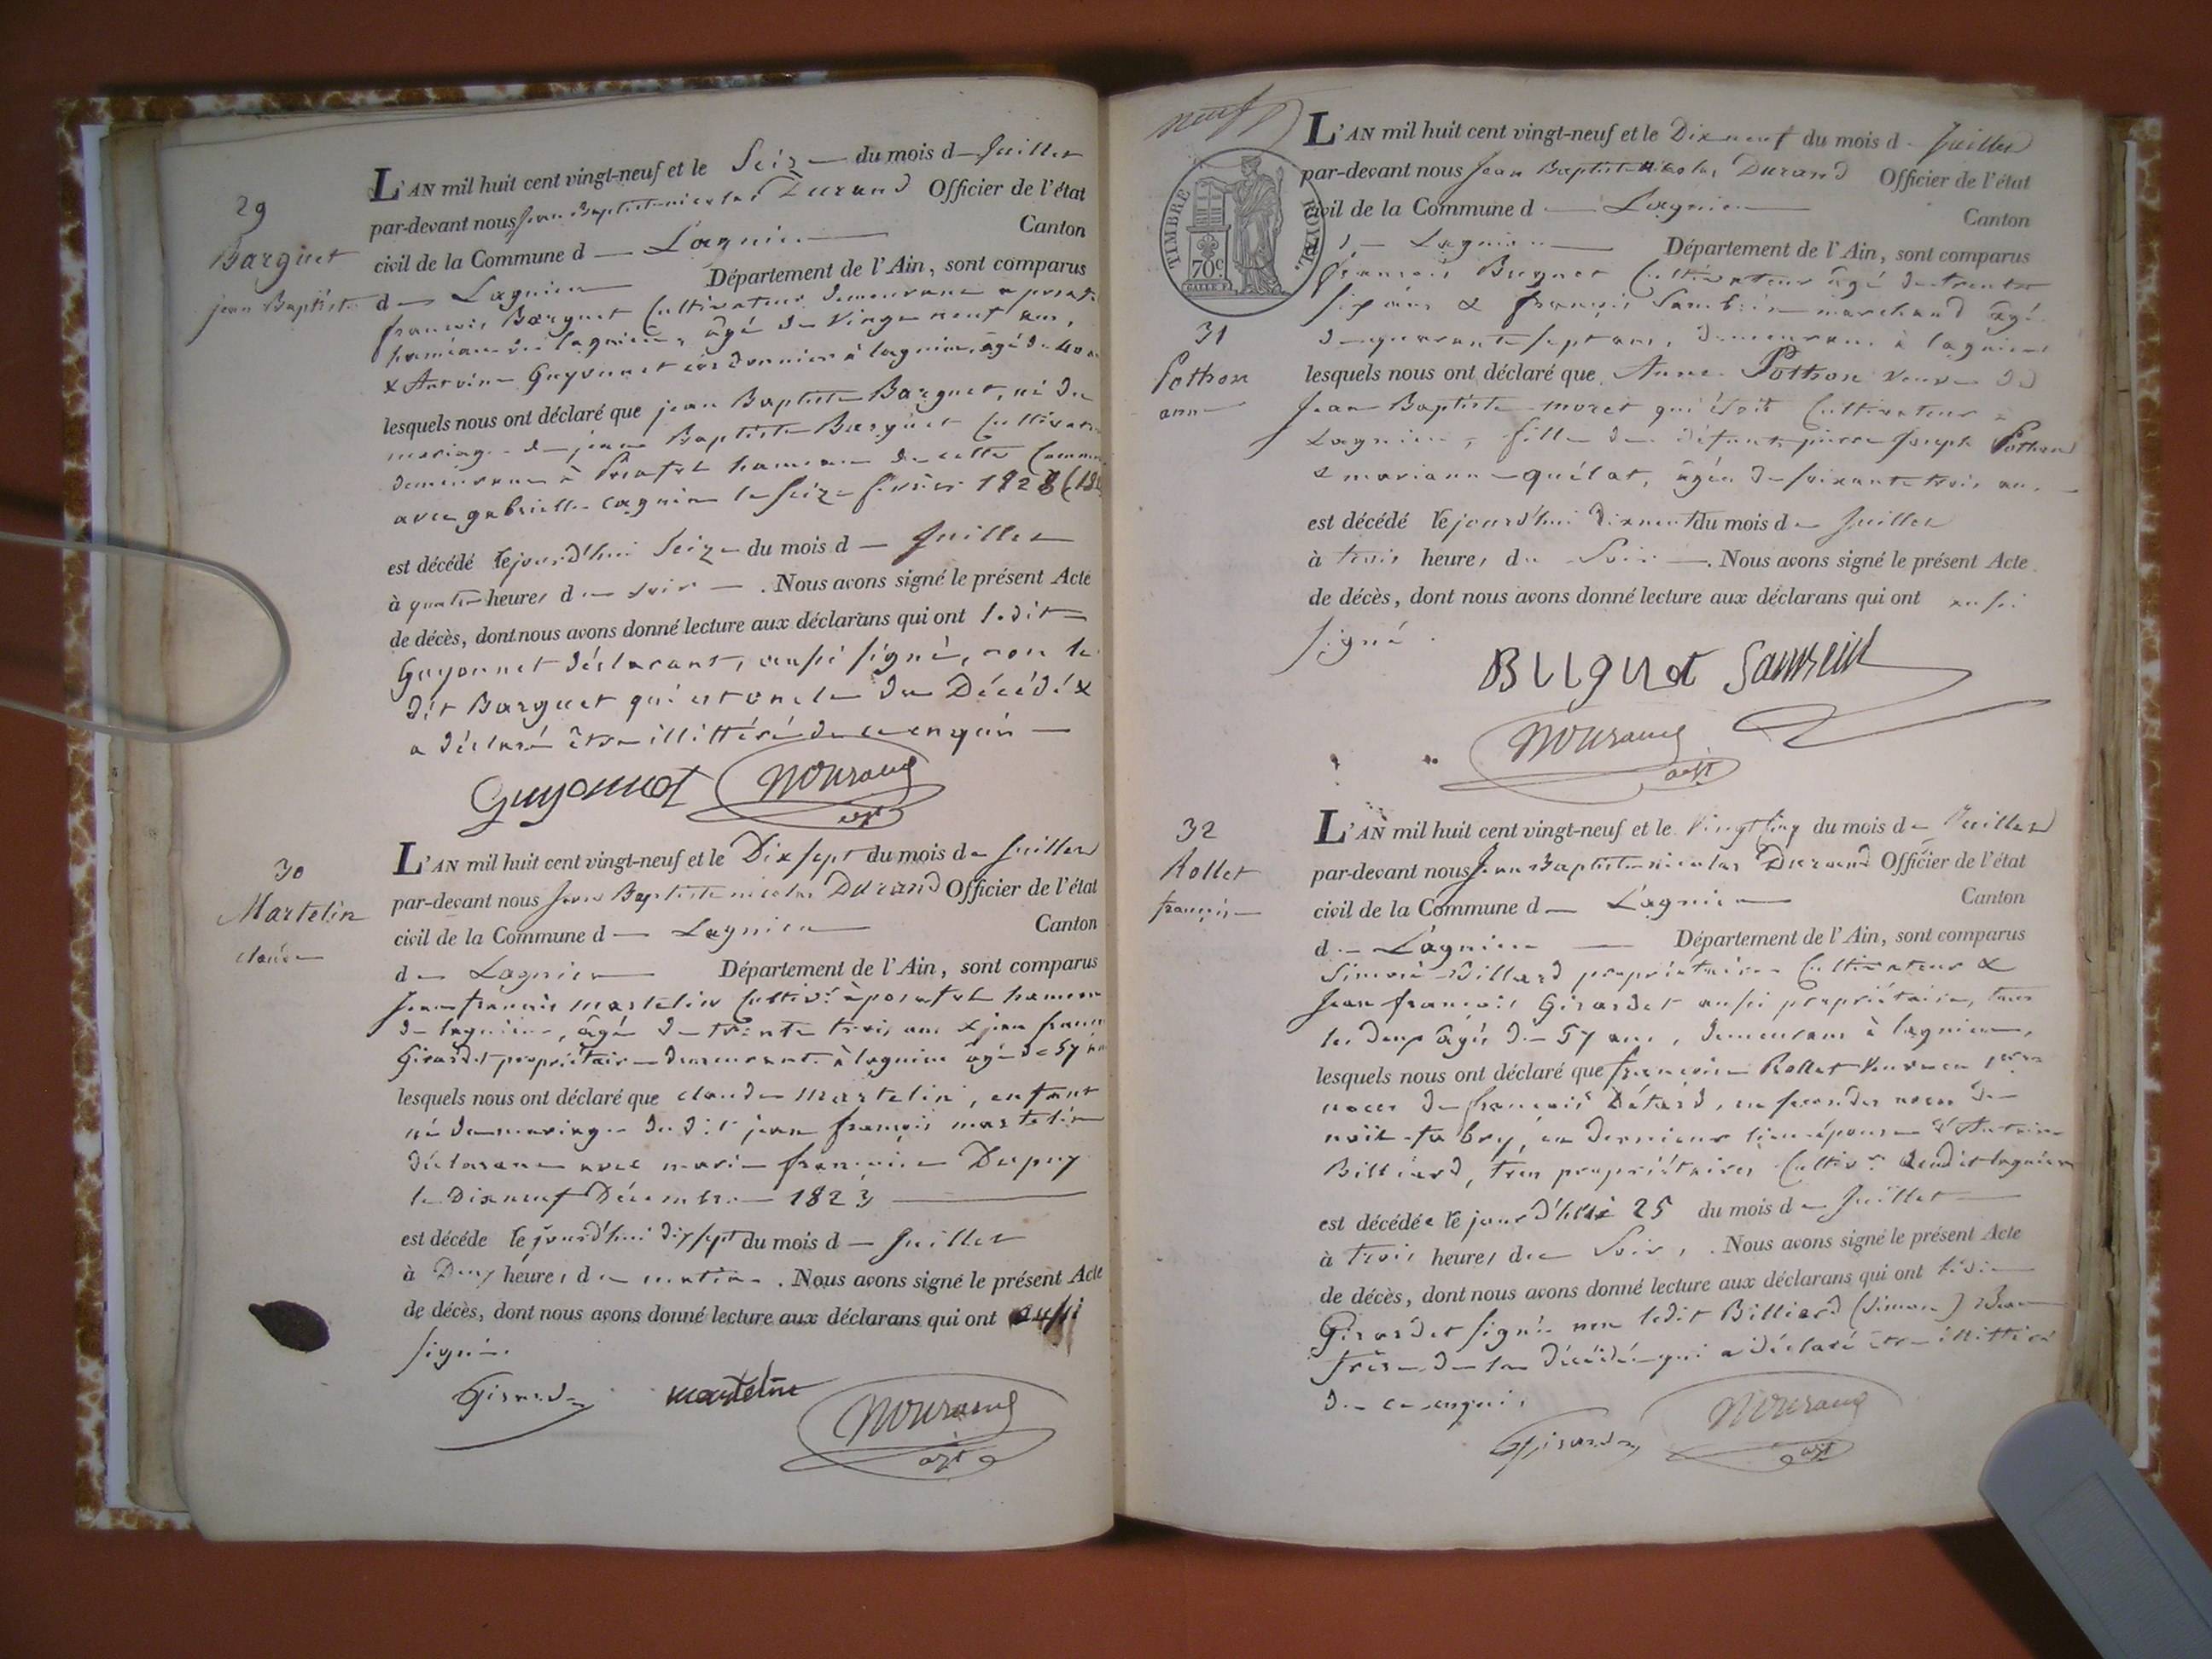 29
Barquet
jean Baptiste
L'AN mil huit cent vingt-neuf et le Seize du mois d Juillet
par-devant nous Jean Baptiste nicolas Durand Officier de l'état
civil de la Commune d Lagnieu Canton
d Lagnieu Département de l'Ain, sont comparus
françois Barquet Cultivateur demeurant a
hameau de lagnieu, âgé de Vingt neuf ans,
& Antoine Guyonnet cordonnier à lagnieu, âgé de 40
lesquels nous ont déclaré que jean Baptiste Barquet, né du
mariage de jean Baptiste Barquet
demeurant à hameau de cette
avec gabrielle cagnin le seize février 1828
est décédé le jourd'hui Seize du mois d Juillet
à quatre heures d u soir . Nous avons signé le présent Acte
de décès, dont nous avons donné lecture aux déclarans qui ont ledit
Guyonnet déclarant, aussi signé, non le
dit Barquet qui est oncle du Décédé &
a déclaré être illittéré de ce enquis
Guyonnet NDurand
30
Martelin
claude
L'AN mil huit cent vingt-neuf et le Dix sept du mois de Juillet
par-devant nous Jean Baptiste nicolas Durand Officier de l'état
civil de la Commune d Lagnieu Canton
d e Lagnieu Département de l'Ain, sont comparus
Jean françois martelin Cultiv.r à hameau
de lagnieu, âgé de trente trois ans & jean
Girardet propriétaire demeurant à lagnieu âgé de 57
lesquels nous ont déclaré que claude Martelin, enfant
né du mariage du dit jean françois martelin
déclarant avec marie françoise Dupuy
le Dixneuf Décembre 1823
est décédé le jourd'hui dix sept du mois d Juillet
à Deux heures d u matin . Nous avons signé le présent Acte
de décès, dont nous avons donné lecture aux déclarans qui ont aussi
signé.
Girardet martelin NDurand
neuf
TIMBRE ROYAL
70c
31
Pothon
anne
L'AN mil huit cent vingt-neuf et le Dixneuf du mois d Juillet
par-devant nous Jean Baptiste Nicolas Durand Officier de l'état
civil de la Commune d Lagnieu Canton
d Lagnieu Département de l'Ain, sont comparus
françois Bugnet Cultivateur âgé de trente
six ans & françois marchand âgé
de quarante sept ans, demeurant à lagnieu
lesquels nous ont déclaré que Anne Pothon veuve de
Jean Baptiste moret qui étoit Cultivateur à
Lagnieu, fille de défunts pierre Joseph Pothon
& marianne quélat, âgée de soixante trois ans
est décédé le jourd'hui dixneuf du mois de Juillet
à trois heures du Soir . Nous avons signé le présent Acte
de décès, dont nous avons donné lecture aux déclarans qui ont aussi
signé.
Bugnet
NDurand
32
Rollet
françoise
L'AN mil huit cent vingt-neuf et le Vingt Cinq du mois de Juillet
par-devant nous Jean Baptiste nicolas Durand Officier de l'état
civil de la Commune d Lagnieu Canton
d e Lagnieu Département de l'Ain, sont comparus
Simon Billiard propriétaire Cultivateur &
Jean françois Girardet aussi propriétaire, tous
les deux âgés de 57 ans, demeurans à lagnieu,
lesquels nous ont déclaré que françoise Rollet Veuve en
noces de françois Détard, en secondes noces de
en dernier lieu épouse d'Antoine
Billiard, tous propriétaires Cultiv.rs audit lagnieu
est décédée le jourd'hui 25 du mois de Juillet
à trois heures du Soir, . Nous avons signé le présent Acte
de décès, dont nous avons donné lecture aux déclarans qui ont ledit
Girardet signé non ledit Billiard (Simon) beau
frère de la décédée qui a déclaré être illittéré
de ce enquis.
Girardet NDurand